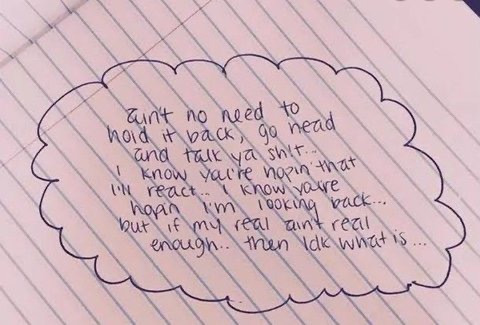 ain't no need to
hold it back, go head
and talk ya sh!t...
I know you're hopin' that
I'll react.. I know you're
hopin I'm looking back...
but if my real ain't real
enough.. then Idk what is...